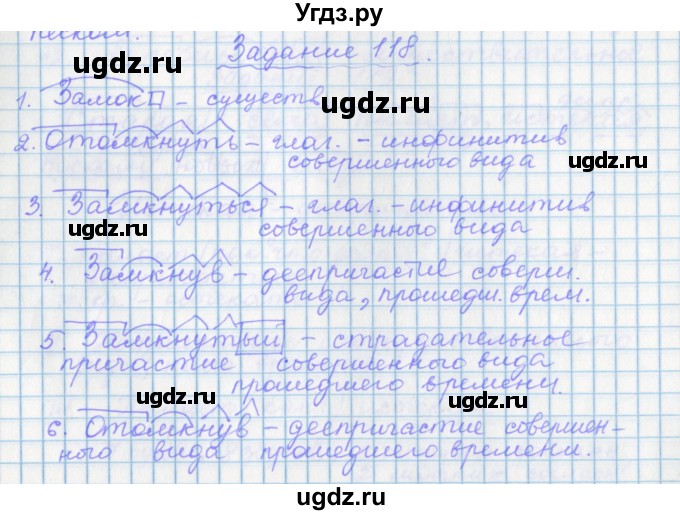 Угдз.ру
песком.
Задание 118.
ugdz.ru ugdz.ru
1. Замок – существ
ugdz.ru
2. Отомкнуть – глаг. – инфинитив
совершенного вида
ugdz.ru ugdz.ru
3. Замкнуться – глаг. – инфинитив
совершенного вида
ugdz.ru
4. Замкнув – деепричастие соверш.
вида, прошедш. врем.
ugdz.ru ugdz.ru
5. Замкнутый – страдательное
причастие совершенного вида
прошедшего времени.
ugdz.ru ugdz.ru
6. Отомкнув – деепричастие совершен-
ного вида прошедшего времени.
ugdz.ru ugdz.ru